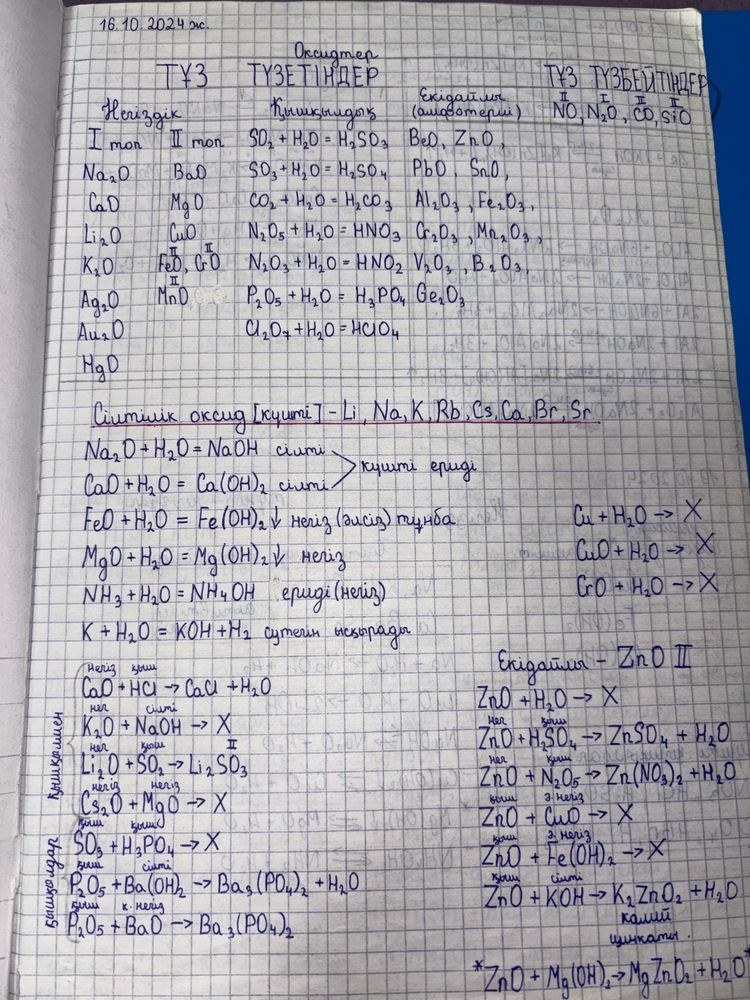 16.10.2024 ж.
Оксидтер
ТҰЗ ТҮЗЕТІНДЕР
ТҰЗ ТҮЗБЕЙТІНДЕР
II I II II
NO, N₂O, CO, SiO
Негіздік Қышқылдық Екідайлы (амфотерлі)
I топ II топ SO₂ + H₂O = H₂SO₃ BeO, ZnO,
Na₂O BaO SO₃ + H₂O = H₂SO₄ PbO, SnO,
CaO MgO CO₂ + H₂O = H₂CO₃ Al₂O₃, Fe₂O₃,
Li₂O CuO N₂O₅ + H₂O = HNO₃ Cr₂O₃, Mn₂O₃,
II II
K₂O FeO, CrO N₂O₃ + H₂O = HNO₂ V₂O₃, B₂O₃,
II
Ag₂O MnO P₂O₅ + H₂O = H₃PO₄ Ge₂O₃
Au₂O Cl₂O₇ + H₂O = HClO₄
HgO
Сілтілік оксид [күшті] - Li, Na, K, Rb, Cs, Ca, Br, Sr.
Na₂O + H₂O = NaOH сілті
CaO + H₂O = Ca(OH)₂ сілті
күшті ериді
FeO + H₂O = Fe(OH)₂↓ негіз (әлсіз) тұнба
MgO + H₂O = Mg(OH)₂↓ негіз
NH₃ + H₂O = NH₄OH ериді (негіз)
K + H₂O = KOH + H₂ сутегін ысқырады
Cu + H₂O → X
CuO + H₂O → X
CrO + H₂O → X
Қышқылмен
негіз қыш
CaO + HCl → CaCl + H₂O
нег сілті
K₂O + NaOH → X
нег қыш II
Li₂O + SO₂ → Li₂SO₃
негіз негіз
Cs₂O + MgO → X
Қышқылдар
қыш қыш
SO₃ + H₃PO₄ → X
қыш сілті
P₂O₅ + Ba(OH)₂ → Ba₃(PO₄)₂ + H₂O
қыш к. негіз
P₂O₅ + BaO → Ba₃(PO₄)₂
Екідайлы - ZnO II
ZnO + H₂O → X
нег қыш
ZnO + H₂SO₄ → ZnSO₄ + H₂O
нег қыш
ZnO + N₂O₅ → Zn(NO₃)₂ + H₂O
қыш э. негіз
ZnO + CuO → X
қыш э. негіз
ZnO + Fe(OH)₂ → X
қыш сілті
ZnO + KOH → K₂ZnO₂ + H₂O
калий
цинкаты.
*ZnO + Mg(OH)₂ → MgZnO₂ + H₂O*